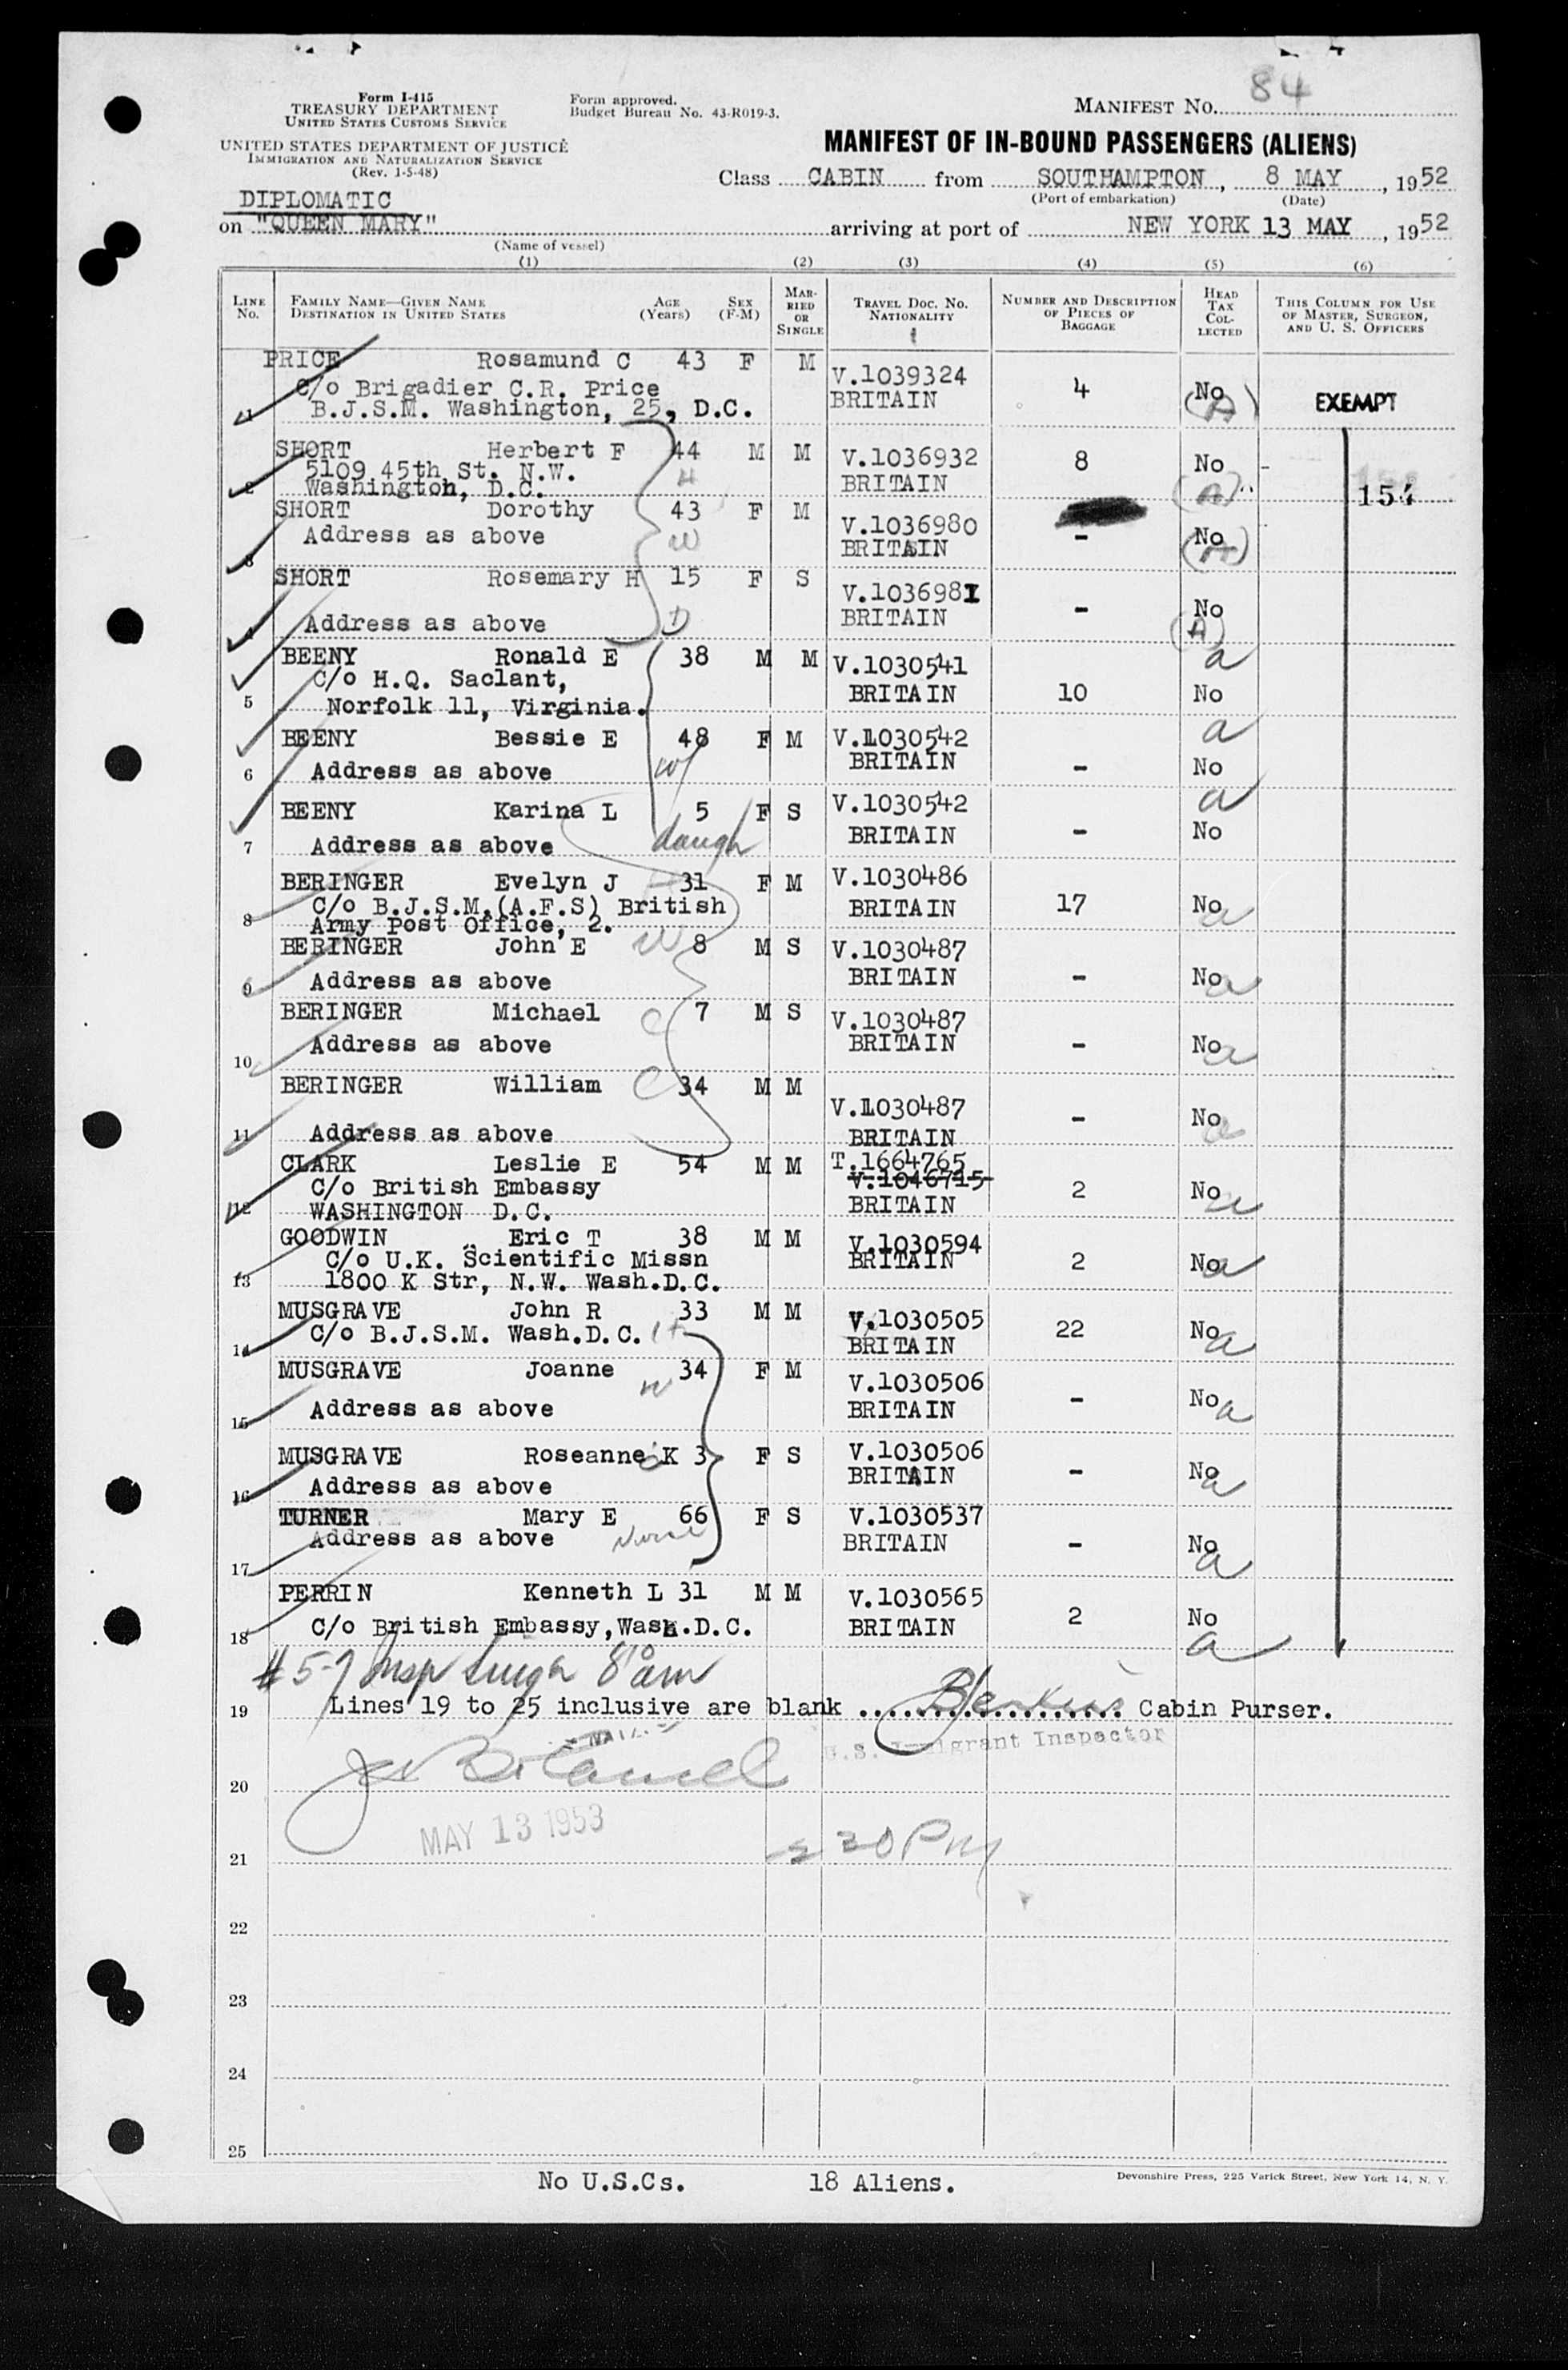 Form I-415
TREASURY DEPARTMENT
UNITED STATES CUSTOMS SERVICE
UNITED STATES DEPARTMENT OF JUSTICE
IMMIGRATION AND NATURALIZATION SERVICE
(Rev. 1-5-48)
Form approved.
Budget Bureau No. 43-R019-3.
MANIFEST No. 84
MANIFEST OF IN-BOUND PASSENGERS (ALIENS)
Class CABIN from SOUTHAMPTON, 8 MAY, 1952
(Port of embarkation) (Date)
DIPLOMATIC
on "QUEEN MARY" arriving at port of NEW YORK 13 MAY, 1952
(Name of vessel)
(1) (2) (3) (4) (5) (6)
LINE No. FAMILY NAME—GIVEN NAME DESTINATION IN UNITED STATES AGE (Years) SEX (F-M) MARRIED OR SINGLE TRAVEL DOC. NO. NATIONALITY NUMBER AND DESCRIPTION OF PIECES OF BAGGAGE HEAD TAX COLLECTED THIS COLUMN FOR USE OF MASTER, SURGEON, AND U. S. OFFICERS
PRICE Rosamund C 43 F M V.1039324
C/o Brigadier C.R. Price BRITAIN 4 No (A) EXEMPT
1 B.J.S.M. Washington, 25, D.C.
SHORT Herbert F 44 M M V.1036932 8 No -
5109 45th St. N.W. H BRITAIN (a) 154
2 Washington, D.C.
SHORT Dorothy 43 F M V.1036980
Address as above W BRITAIN - No (A)
3
SHORT Rosemary H 15 F S V.1036981
4 Address as above D BRITAIN - No (A)
BEENY Ronald E 38 M M V.1030541 a
C/o H.Q. Saclant, BRITAIN 10 No
5 Norfolk 11, Virginia.
BEENY Bessie E 48 F M V.1030542 a
6 Address as above W BRITAIN - No
BEENY Karina L 5 F S V.1030542 a
7 Address as above daugh BRITAIN - No
BERINGER Evelyn J 31 F M V.1030486
C/o B.J.S.M.(A.F.S) British BRITAIN 17 No a
8 Army Post Office, 2.
BERINGER John E W 8 M S V.1030487
9 Address as above BRITAIN - No a
BERINGER Michael C 7 M S V.1030487
10 Address as above BRITAIN - No a
BERINGER William C 34 M M V.1030487
11 Address as above BRITAIN - No a
CLARK Leslie E 54 M M T.1664765
C/o British Embassy V.1046715 2 No a
12 WASHINGTON D.C. BRITAIN
GOODWIN Eric T 38 M M V.1030594
C/o U.K. Scientific Missn BRITAIN 2 No a
13 1800 K Str, N.W. Wash.D.C.
MUSGRAVE John R 33 M M V.1030505
14 C/o B.J.S.M. Wash.D.C. H BRITAIN 22 No a
MUSGRAVE Joanne 34 F M V.1030506
15 Address as above W BRITAIN - No a
MUSGRAVE Roseanne K 3 F S V.1030506
16 Address as above C BRITAIN - No a
TURNER Mary E 66 F S V.1030537
17 Address as above Nurse BRITAIN - No a
PERRIN Kenneth L 31 M M V.1030565
18 C/o British Embassy,Wash.D.C. BRITAIN 2 No a
# 5-7 Insp 8 am
19 Lines 19 to 25 inclusive are blank Cabin Purser.
U.S. Immigrant Inspector
20
MAY 13 1953
30 PM
21
22
23
24
25
No U.S.Cs. 18 Aliens.
Devonshire Press, 225 Varick Street, New York 14, N. Y.